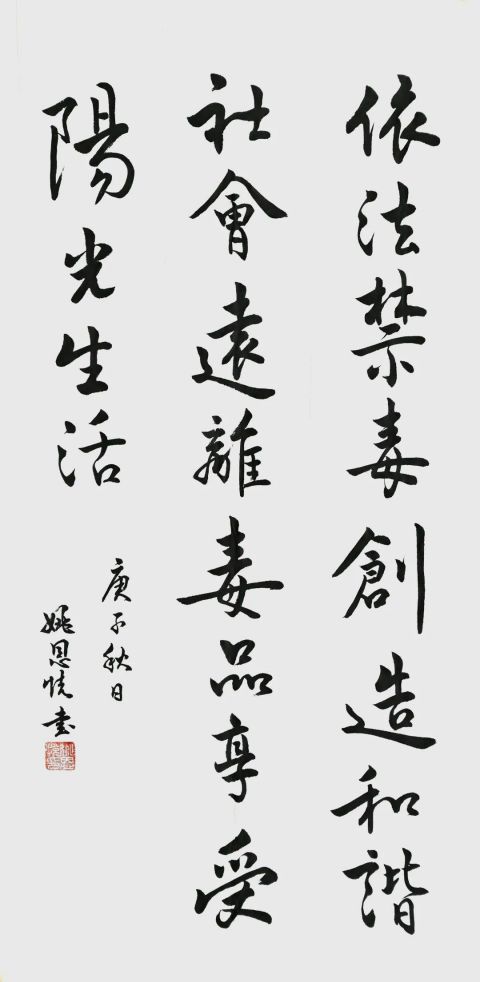 依法禁毒創造和諧
社會遠離毒品享受
陽光生活
庚子秋日
姚恩悦書